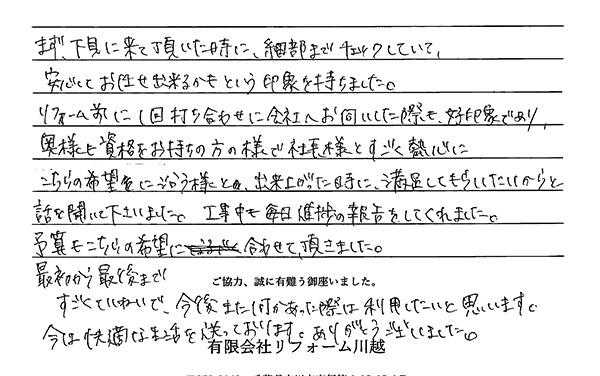 まず、下見に来て頂いた時に、細部までチェックしていて、
安心してお任せ出来るかもという印象を持ちました。
リフォーム前に1回打ち合わせに会社へお伺いした際も、好印象であり、
奥様も資格をお持ちの方の様で社長様とすごく熱心に
こちらの希望金に沿う様とか、出来上がった時に、満足してもらいたいからと
話を聞いて下さいました。工事中も毎日進捗の報告をしてくれました。
予算もこちらの希望に合わせて、頂きました。
最初から最後まで
ご協力、誠に有難う御座いました。
すごくていねいで、今後また何かあった際は利用したいと思います。
今は快適な生活を送っております。ありがとうございました。
有限会社リフォーム川越